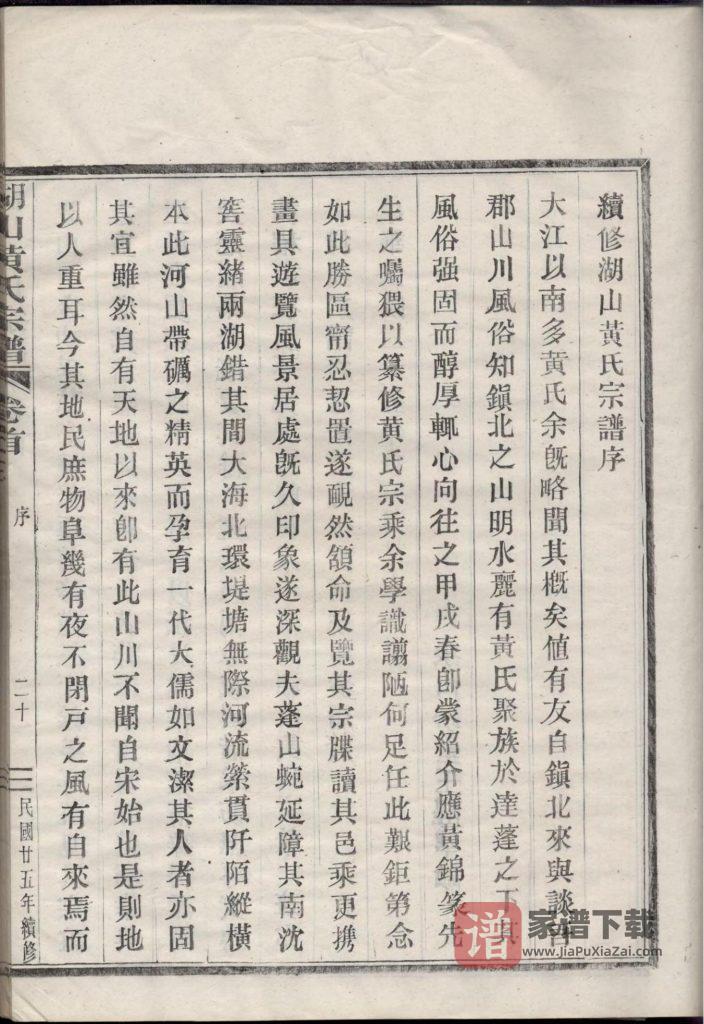 續修湖山黃氏宗譜序
大江以南多黃氏余旣略聞其槪矣値有友自鎭北來與談吾
郡山川風俗知鎭北之山明水麗有黃氏聚族於達蓬之下其
風俗强固而醇厚輒心向往之甲戌春卽蒙紹介應黃錦篆先
生之囑猥以纂修黃氏宗乘余學識譾陋何足任此艱鉅第念
如此勝區甯忍恝置遂靦然頷命及覽其宗牒讀其邑乘更携
畫具遊覽風景居處旣久印象遂深觀夫蓬山蜿延障其南沈
窖靈緒兩湖錯其間大海北環堤塘無際河流縈貫阡陌縱橫
本此河山帶礪之精英而孕育一代大儒如文潔其人者亦固
其宜雖然自有天地以來卽有此山川不聞自宋始也是則地
以人重耳今其地民庶物阜幾有夜不閉戶之風有自來焉而
湖山黃氏宗譜 卷首 序 二十 民國廿五年續修
譜 家谱下载
www.JiaPuXiaZai.com